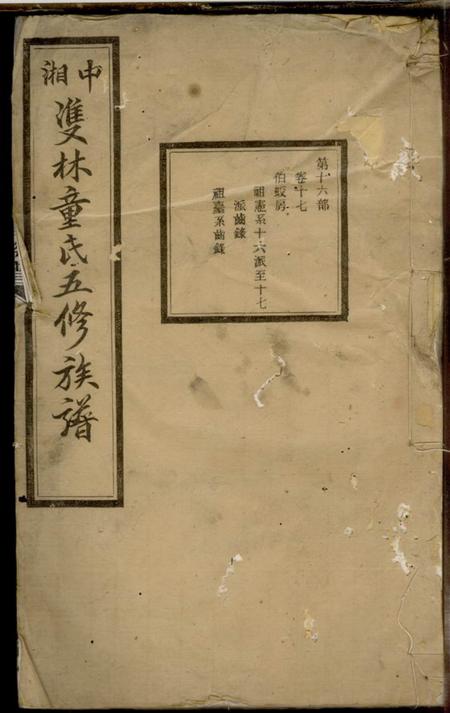 中湘
雙林童氏五修族譜
第十六部
卷十七
伯蛟房
祖憲系十六派至十七
派齒錄
祖臺系齒錄